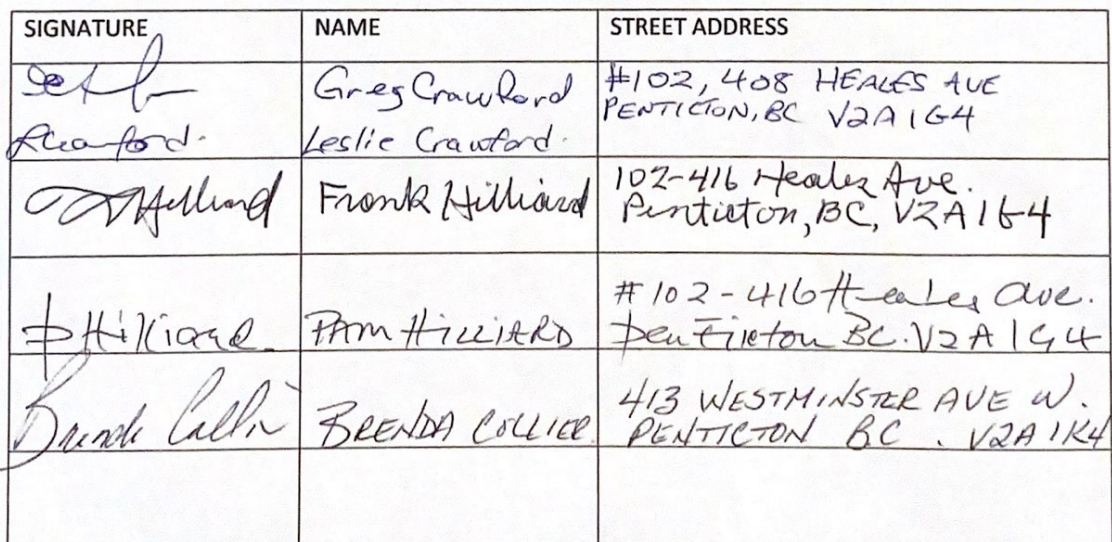 SIGNATURE NAME STREET ADDRESS
Greg Crawford #102, 408 HEALES AVE
PENTICTON, BC V2A 1G4
LCrawford. Leslie Crawford.
Hilliard Frank Hilliard 102-416 Heales Ave.
Penticton, BC, V2A 1G4
PHilliard. PAM HILLIARD #102-416 Heales Ave.
Penticton BC. V2A 1G4
Brenda Collier BRENDA COLLIER 413 WESTMINSTER AVE W.
PENTICTON BC. V2A 1K4